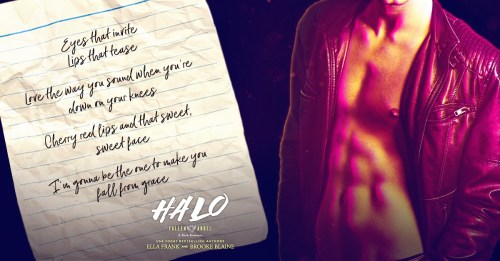 Eyes that invite
Lips that tease
Love the way you sound when you're
down on your knees
Cherry red lips and that sweet,
sweet face
I'm gonna be the one to make you
fall from grace
HALO
FALLEN ANGEL
A Rock Romance
USA TODAY BESTSELLING AUTHORS
ELLA FRANK AND BROOKE BLAINE